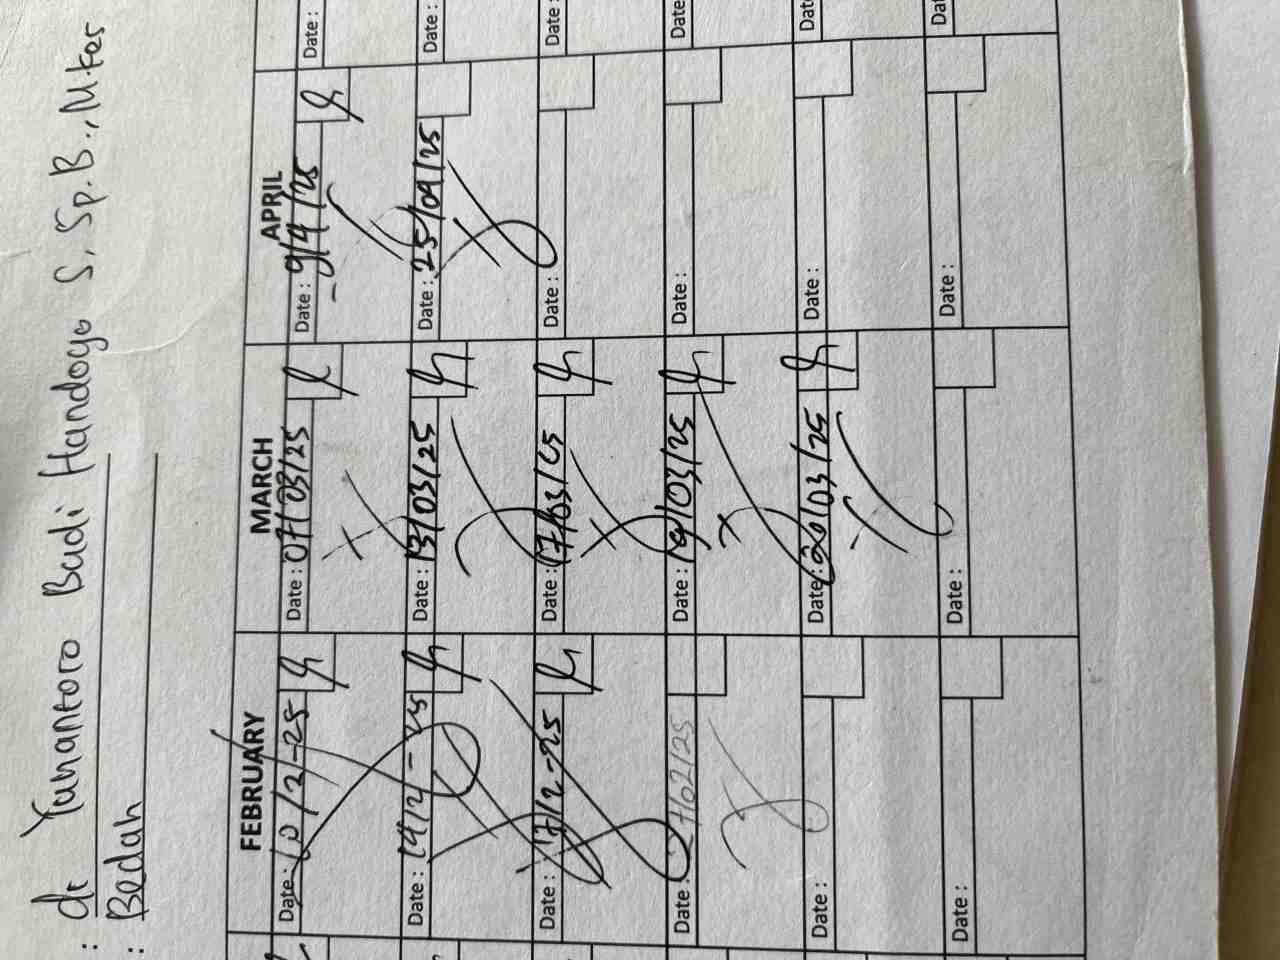 : dr Yunantoro Budi Handogo S, Sp.B., M.Kes
: Bedah
FEBRUARY MARCH APRIL
Date : 10/2-25 Date : 07/03/25 Date : 9/4/25 Date :
Date : 14/2-25 Date : 13/03/25 Date : 25/04/25 Date :
Date : 17/2-25 Date : 17/03/25 Date : Date :
Date : 27/02/25 Date : 19/03/25 Date : Date
Date : Date : 20/03/25 Date : Dat
Date : Date : Date : Dat